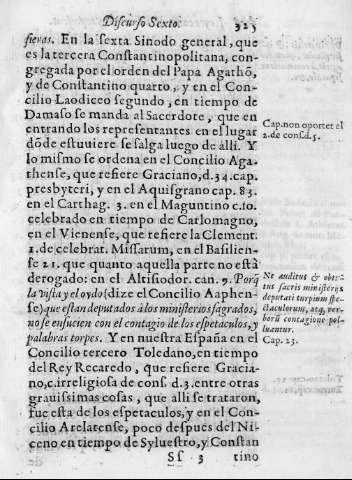 Discurso Sexto. 325
fieras. En la sexta Sinodo general, que
es la tercera Constantinopolitana, con-
gregada por el orden del Papa Agathõ,
y de Constantino quarto, y en el Con-
cilio Laodiceo segundo, en tiempo de
Damaso se manda al Sacerdote, que en
entrando los representantes en el lugar
dõde estuuiere se salga luego de alli. Y
lo mismo se ordena en el Concilio Aga-
thense, que refiere Graciano, d.34.cap.
presbyteri, y en el Aquisgrano cap. 83.
en el Carthag. 3. en el Maguntino c.10.
celebrado en tiempo de Carlomagno,
en el Vienense, que refiere la Clement.
1.de celebrat. Missarum, en el Basilien-
se 21. que quanto aquella parte no està
derogado: en el Altisiodor. can. 9. Porq̃
la vista y el oydo (dize el Concilio Aaphen-
se) que estan deputados à los ministerios sagrados,
no se ensucien con el contagio de los espetaculos, y
palabras torpes. Y en nuestra España en el
Concilio tercero Toledano, en tiempo
del Rey Recaredo, que refiere Gracia-
no, c.irreligiosa de cons. d.3. entre otras
grauissimas cosas, que alli se trataron,
fue esta de los espetaculos, y en el Con-
cilio Arelatense, poco despues del Ni-
ceno en tiempo de Syluestro, y Constan
Ss 3 tino
Cap.non oportet el
2.de cons.d.5.
Ne auditus & obtu-
tus sacris ministerijs
deputati turpium spe-
ctaculorum, atq; ver-
borũ contagione pol-
luantur.
Cap. 23.